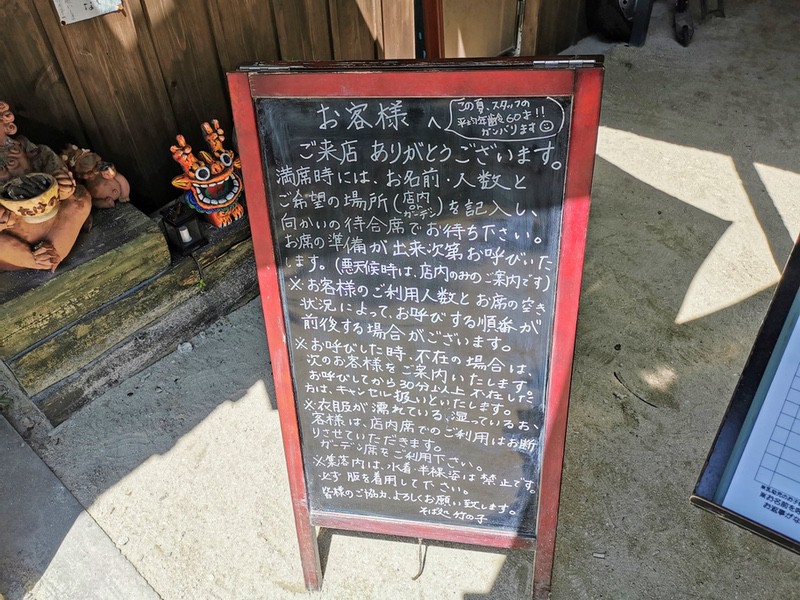 お客様へ
この夏、スタッフの
平均年齢60才!!
ガンバります
ご来店 ありがとうございます。
満席時には、お名前・人数と
ご希望の場所(店内 or ガーデン)を記入し、
向かいの待合席でお待ち下さい。
お席の準備が出来次第お呼びいた
します。(悪天候時は、店内のみのご案内です)
※お客様のご利用人数とお席の空き
状況によって、お呼びする順番が
前後する場合がございます。
※お呼びした時、不在の場合は、
次のお客様をご案内いたします。
お呼びしてから30分以上不在した
方は、キャンセル扱いといたします。
※衣服が濡れている、湿っているお
客様は、店内席でのご利用はお断
りさせていただきます。
ガーデン席をご利用下さい。
※集落内は、水着・半裸浴は禁止です。
必ず服を着用して下さい。
皆様のご協力、よろしくお願い致します。
そば処 竹の子